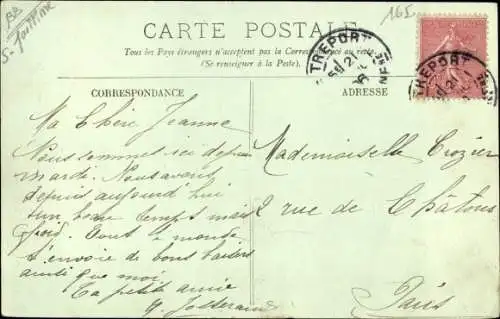 BB
165
CARTE POSTALE
Tous les Pays étrangers n'acceptent pas la Correspondance au recto.
(Se renseigner à la Poste).
TREPORT
TREPORT
CORRESPONDANCE
ADRESSE
Ma Chère Jeanne
Nous sommes ici depuis
mardi. Nous avons
depuis aujourd'hui
un beau temps mais
froid. Tout le monde
t'envoie de bons baisers
ainsi que moi
Ta petite amie
Mademoiselle Crozier
2 rue de Châtons
Paris